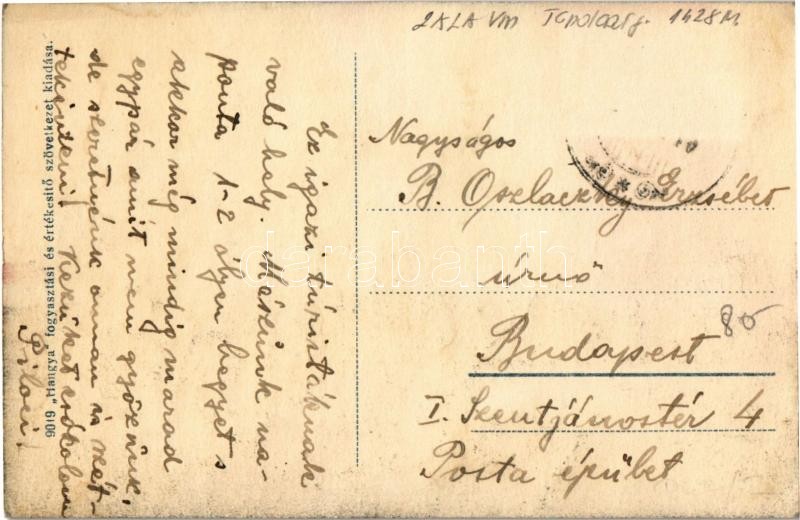 ZALA Vm Tapolcai j. 1428 M
9019 „Hangya" fogyasztási és értékesítő szövetkezet kiadása.
Ez igazi túristáknak
való hely. Mászunk na-
ponta 1-2 ilyen hegyet s
akkor még mindig marad
egypár amit nem győzünk,
de szeretnénk onnan is szét-
tekinteni. Kezüket csókolom
Piloci!
Nagyságos
B. Oszlaczky Erzsébet
úrnő
Budapest
I. Szentjánostér 4
Posta épület
80
darabanth